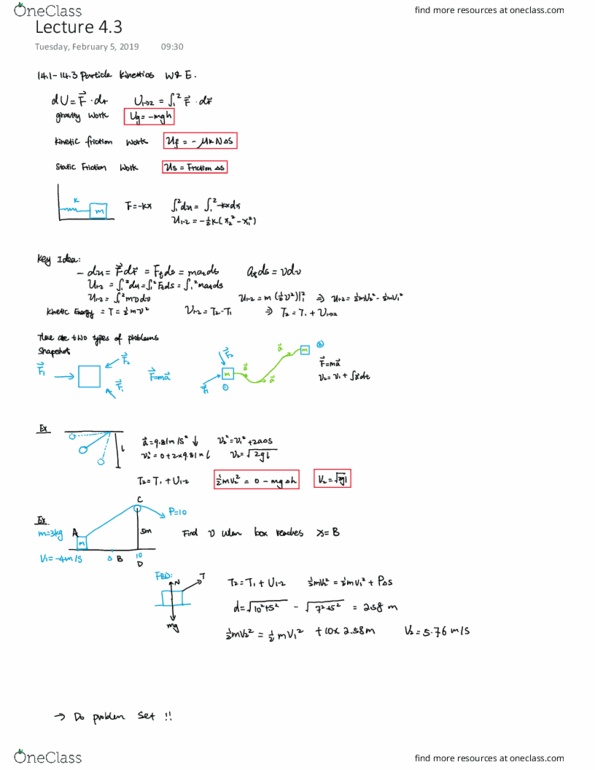 OneClass
find more resources at oneclass.com
Lecture 4.3
Tuesday, February 5, 2019 09:30
14.1-14.3 Particle Kinetics W & E.
dU = F⃗·dr U₁→₂ = ∫₁² F⃗·dr⃗
gravity work Ug = -mgh
kinetic friction work Uf = -μkNΔS
Static Friction Work Us = Friction ΔS
k
m
F = -kx ∫₁²du = ∫₁² -kxdx
U₁₋₂ = -½k(x₂² - x₁²)
Key Idea:
- du = F⃗dr⃗ = Ftds = matds atds = vdv
U₁₋₂ = ∫₁²du = ∫₁²Ftds = ∫₁²matds
U₁₋₂ = ∫₁²mvdv U₁₋₂ = m(½v²)|₁² ⇒ U₁₋₂ = ½mv₂² - ½mv₁²
Kinetic Energy = T = ½mv² U₁₋₂ = T₂ - T₁ ⇒ T₂ = T₁ + U₁→₂
There are two types of problems
Snapshot
F⃗₁ F⃗₂ F⃗₁ F⃗=ma⃗
F⃗₂ F⃗₁ m ① a⃗ a⃗ m ②
F⃗=ma⃗
V₂ = V₁ + ∫a⃗dt
Ex
L
a⃗ = 9.81m/s² ↓ V₂² = V₁² + 2aΔS
V₂² = 0 + 2×9.81×L V₂ = √2gL
T₂ = T₁ + U₁₋₂ ½mV₂² = 0 - mgΔh
Ex
m=3kg A C P=10
m 5m
V₁ = -4m/s B 10 D
Find v when box reaches x = B
FBD:
N T
mg
T₂ = T₁ + U₁₋₂ ½mV₂² = ½mV₁² + PΔS
d = √10²+5² - √7²+5² = 2.58 m
½mV₂² = ½mV₁² + 10×2.58m V₂ = 5.76 m/s
→ Do problem set !!
OneClass
find more resources at oneclass.com